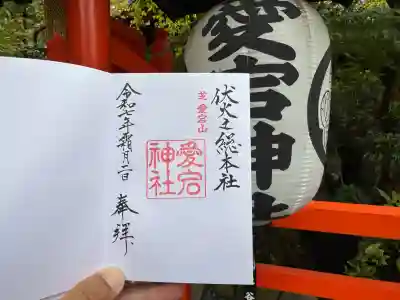 伏火之総本社
芝愛宕山
愛宕
神社
奉拝
令和七年霜月二日
愛宕神社
谷